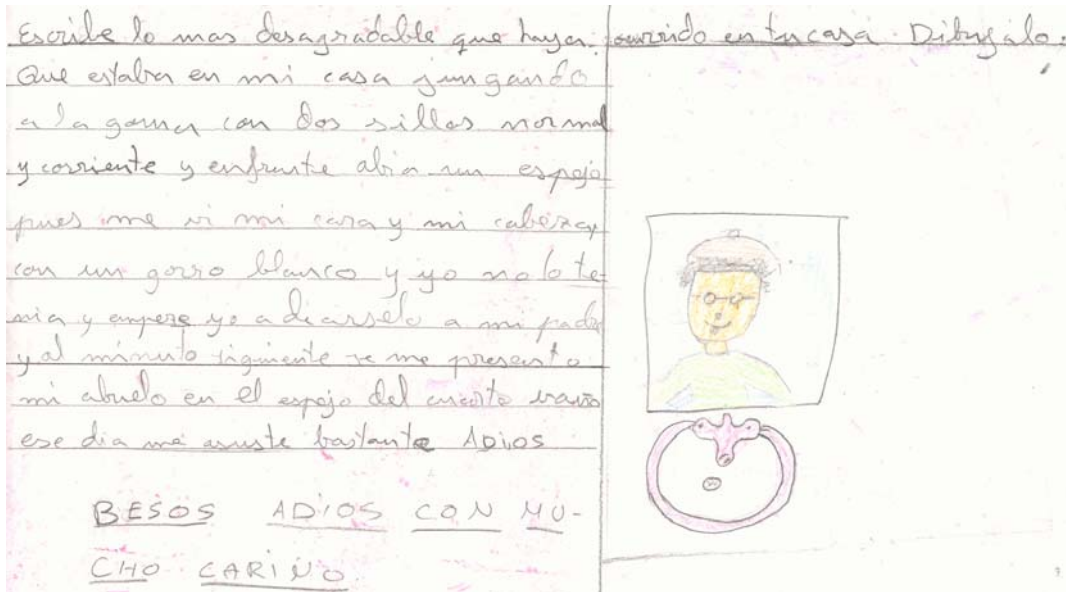 Escribe lo mas desagradable que haya ocurrido en tu casa. Dibujalo.
Que estaba en mi casa jungando
a la goma con dos sillas normal
y corriente y enfrente abia un espejo
pues me vi mi cara y mi cabeza
con un gorro blanco y yo no lo te-
nia y empeze yo a dicirselo a mi padre
y al minuto siguiente se me presento
mi abuelo en el espejo del cuarto vaño
ese dia me asuste bastante ADIOS
BESOS ADIOS CON MU-
CHO CARIÑO